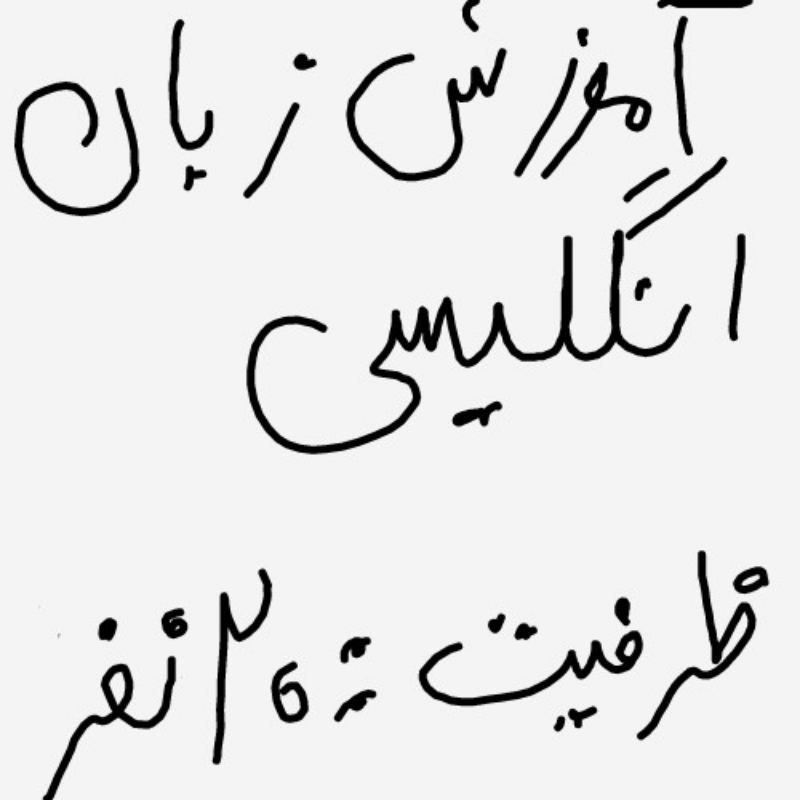 آموزش زبان
انگلیسی
ظرفیت : ۲۰ نفر